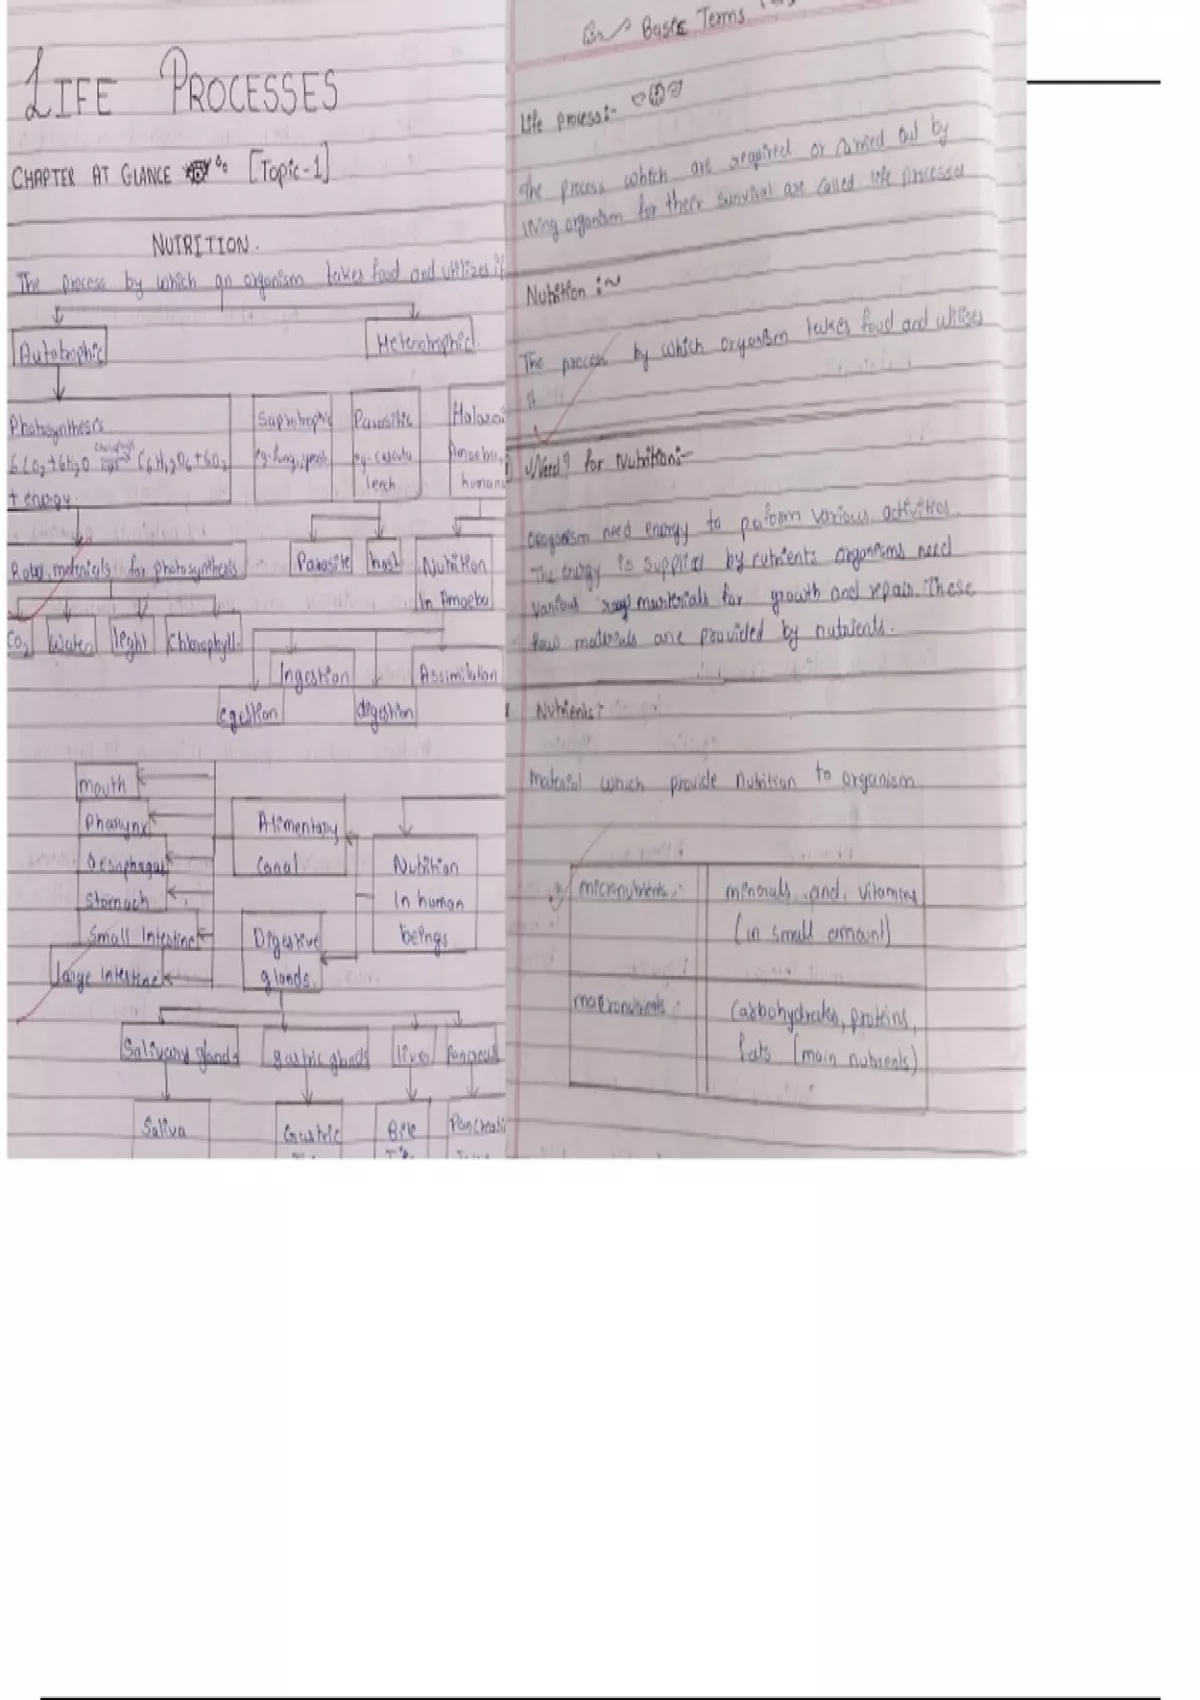 LIFE PROCESSES
CHAPTER AT GLANCE [Topic-1]
NUTRITION.
The process by which an organism takes food and utilizes it
Autotrophic
Heterotrophic.
Photosynthesis
6CO2+6H2O → C6H12O6+6O2
+ energy
Saprotrophic
eg-fungi, yeast
Parasitic
eg-cascuta
leech
Holozoi
Amoeba,
humans
Raw materials for photosynthesis
CO2
Water
light
Chlorophyll
Parasite
host
Nutrition
In Amoeba
Ingestion
Assimilation
egestion
digestion
mouth
Pharynx
Oesophagus
Stomach
Small Intestine
Large Intestine
Alimentary
Canal
Nutrition
In human
beings
Digestive
glands.
Salivary glands
gastric glands
liver
Pancreas
Saliva
Gastric
Bile
Pancreati
Basic Terms
Life process:-
The process which are required or carried out by
living organism for their survival are called life processes
Nutrition :~
The process by which organism takes food and utilises
it
Need? for Nutrition:-
Organism need energy to perform various activities.
The energy is supplied by nutrients organisms need
various raw materials for growth and repair. These
raw materials are provided by nutrients.
Nutrients:
Material which provide nutrition to organism
micronutrients :
minerals and vitamins
(in small amount)
macronutrients :
Carbohydrates, proteins,
fats (main nutrients)